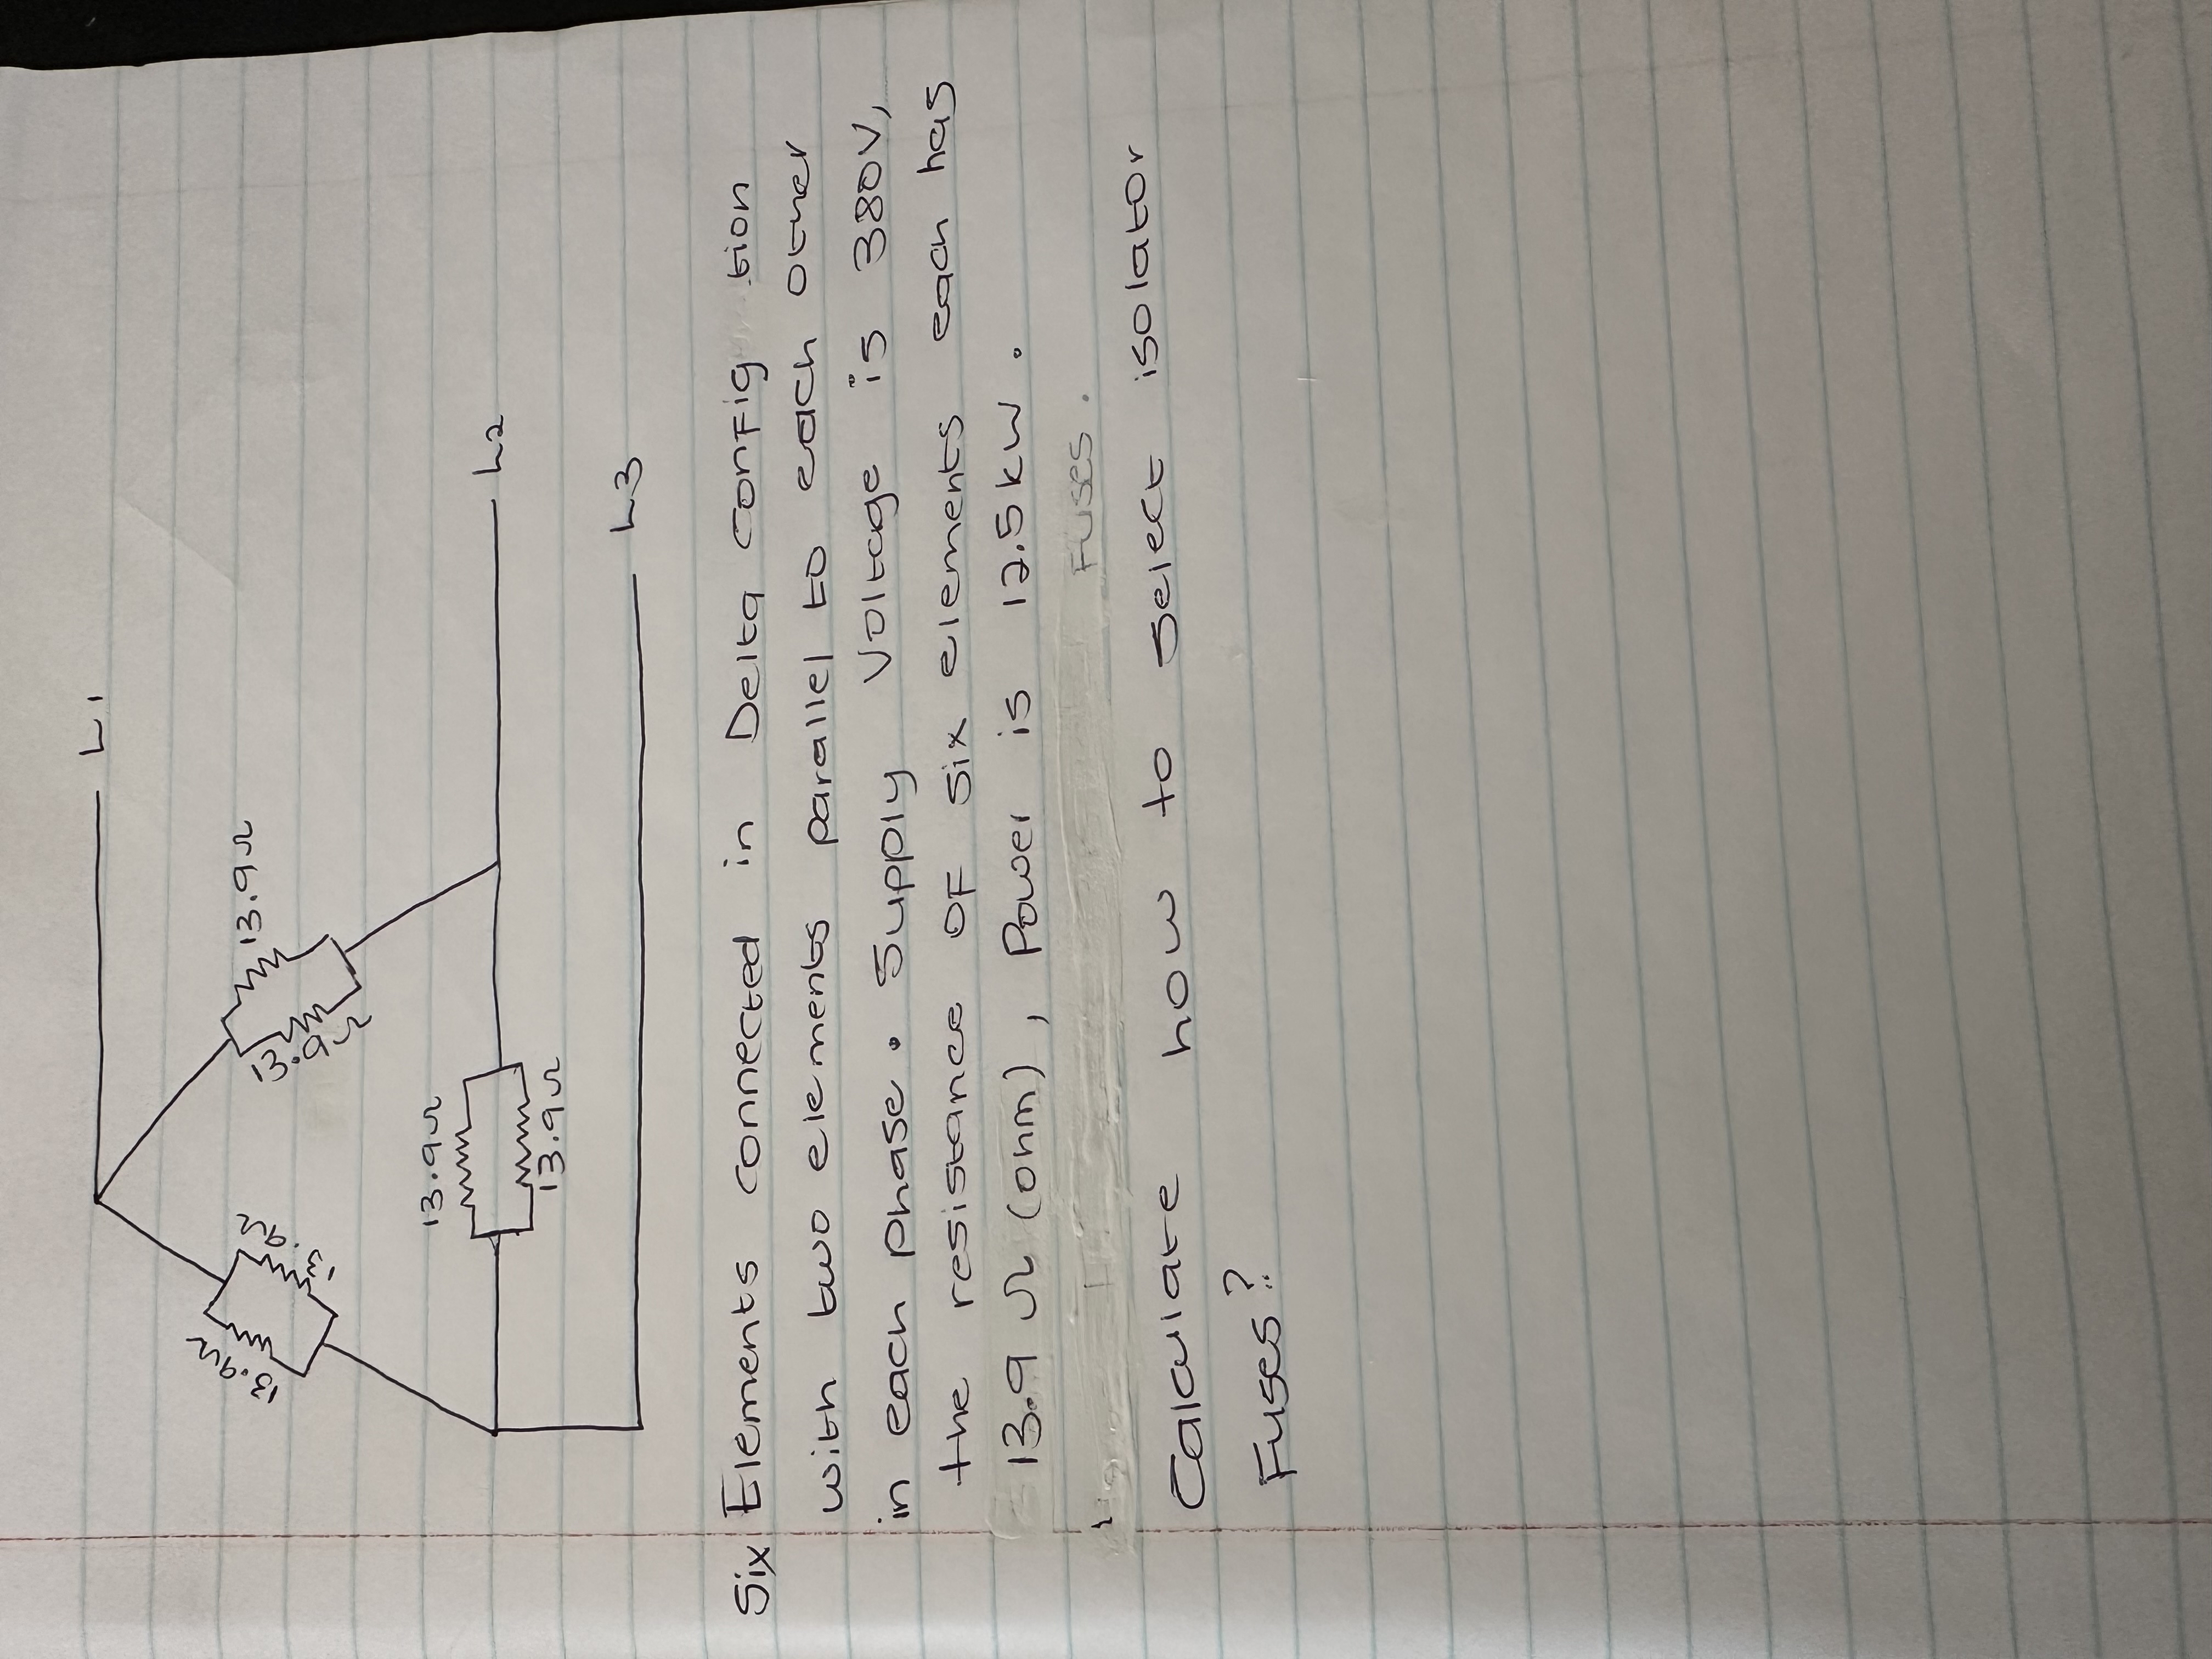 L1
13.9Ω
13.9Ω
13.9Ω
13.9Ω
L2
13.9Ω
13.9Ω
L3
Six Elements connected in Delta config tion
with two elements parallel to each other
in each phase. Supply Voltage is 380V,
the resistance of six elements each has
13.9 Ω (ohm), Power is 12.5kw.
Fuses.
Calculate how to select isolator
Fuses?